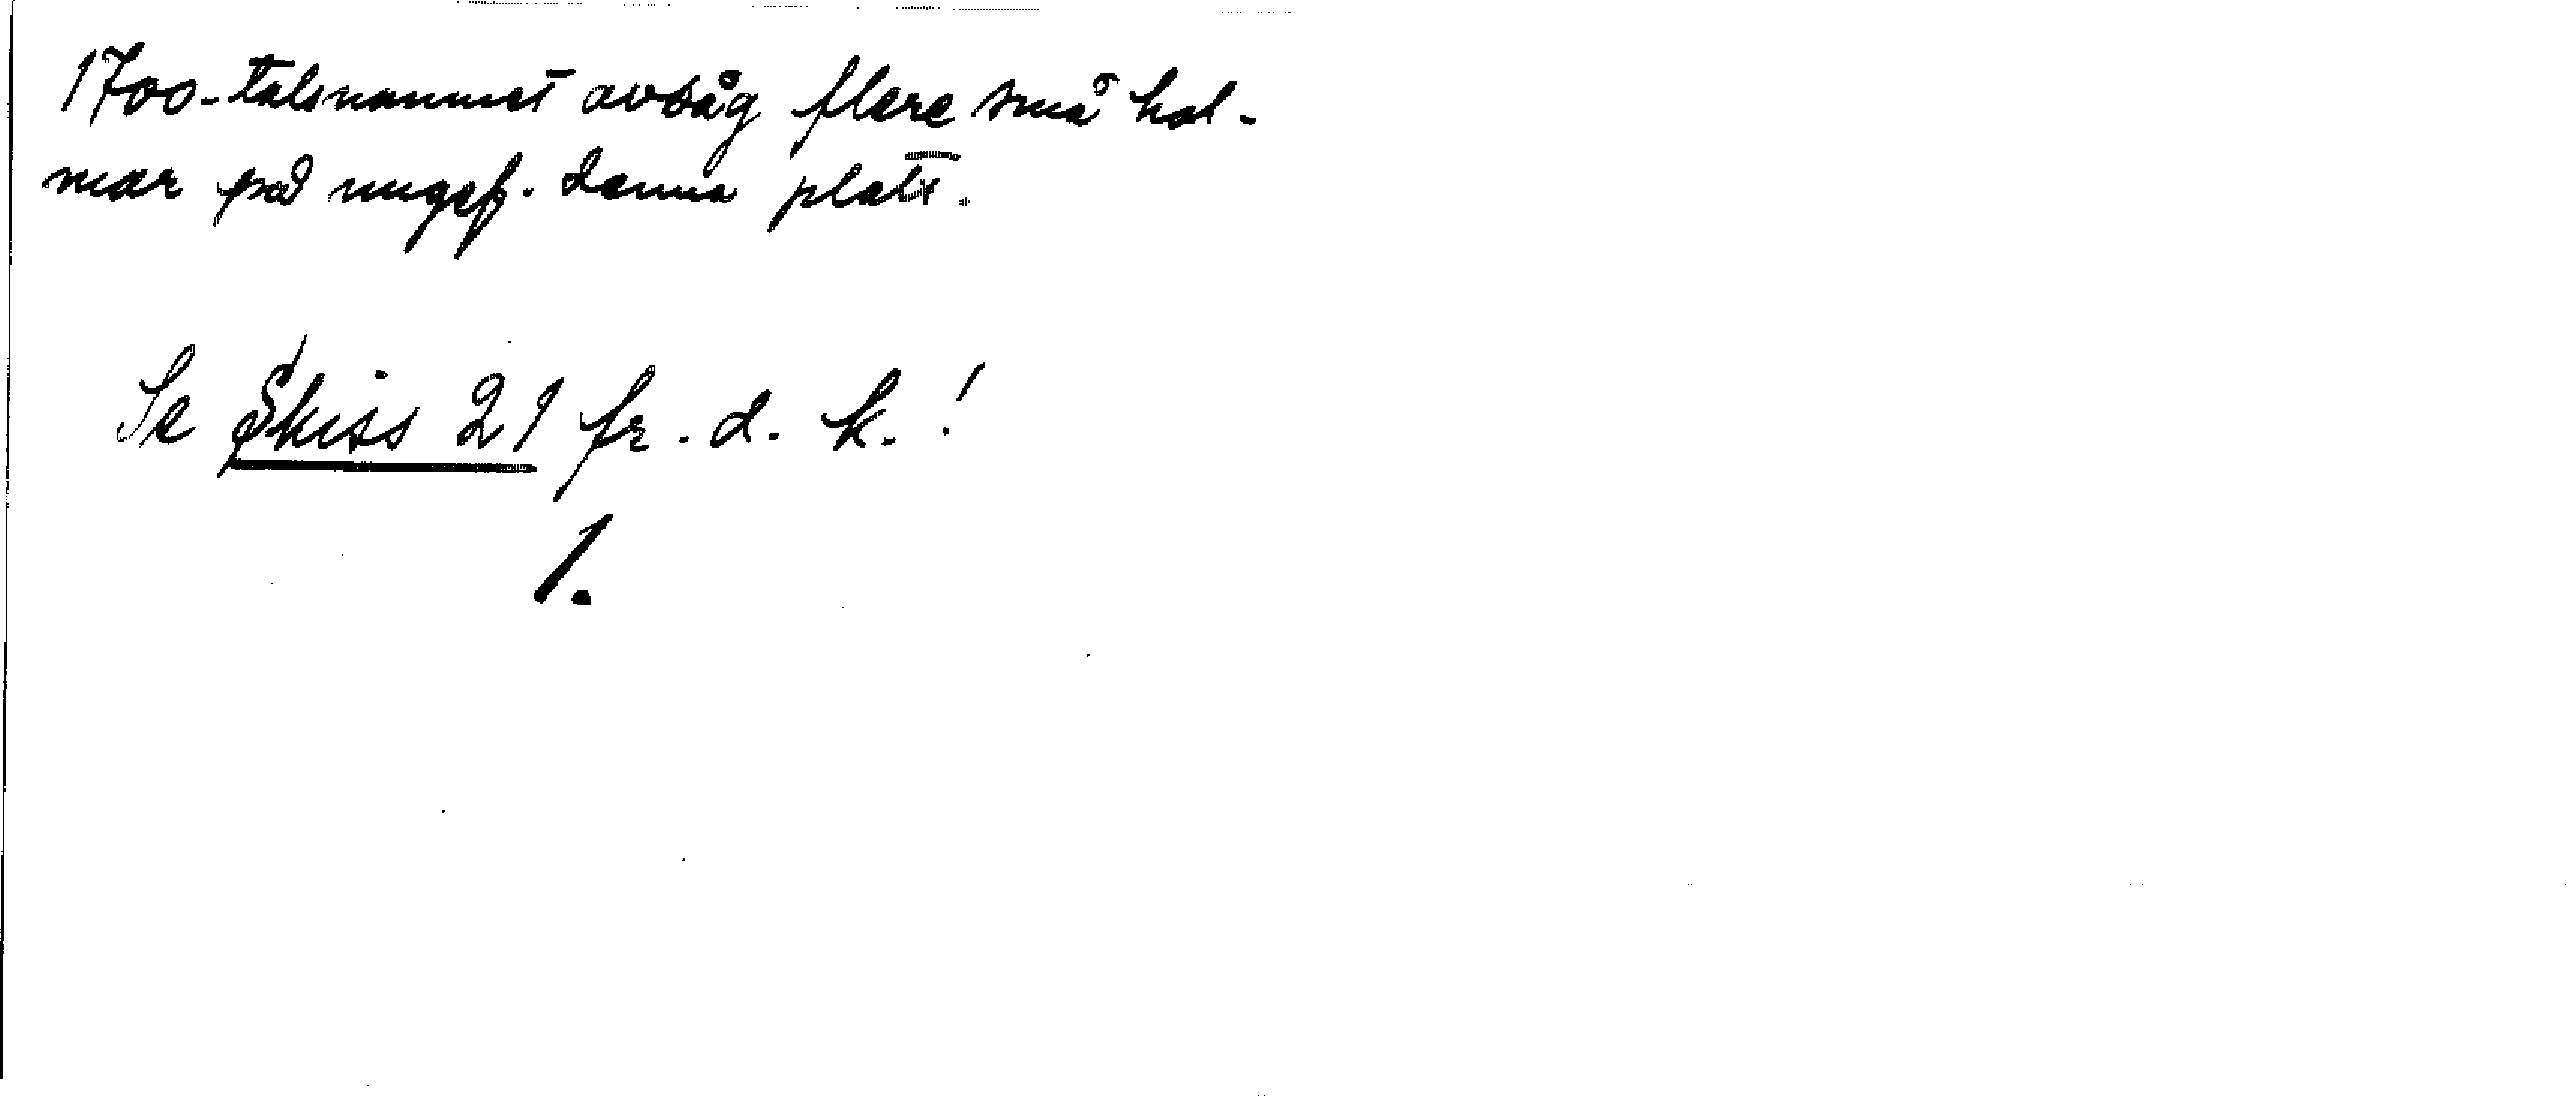 1700-talsnamnet avsåg flere små hol-
mar på ungef. denna plats.
Se Skiss 21 fr. d. k.!
1.